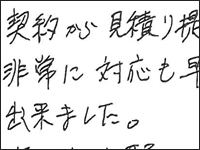 契約から見積り提
非常に対応も早
出来ました。